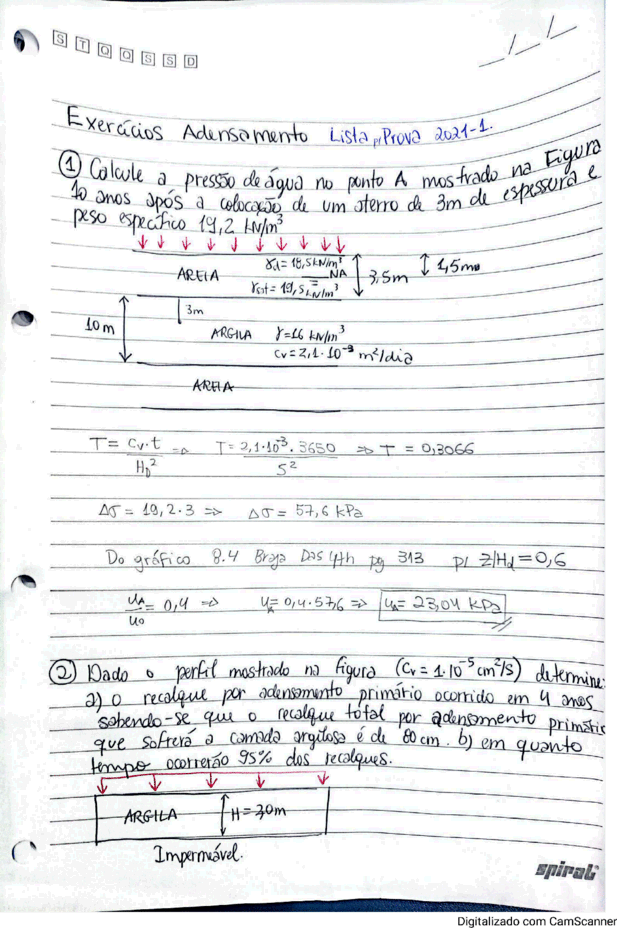 S T Q Q S S D
Exercícios Adensamento Lista p/ Prova 2021-1.
① Calcule a pressão de água no ponto A mostrado na Figura
10 anos após a colocação de um aterro de 3m de espessura e
peso específico 19,2 kN/m³
AREIA γd = 18,5 kN/m³ NA 3,5m 1,5m
γsat = 19,5 kN/m³
3m
10m ARGILA γ=16 kN/m³
cv = 2,1 . 10⁻³ m²/dia
AREIA
T = cv.t / Hd² => T = 2,1.10⁻³ . 3650 / 5² => T = 0,3066
Δσ = 19,2.3 => Δσ = 57,6 kPa
Do gráfico 8.4 Braja Das 4th pg 313 p/ z/Hd = 0,6
uA/u0 = 0,4 => uA = 0,4.57,6 => uA = 23,04 kPa
② Dado o perfil mostrado na figura (Cv = 1.10⁻⁵ cm²/s) determine:
a) o recalque por adensamento primário ocorrido em 4 anos
sabendo-se que o recalque total por adensamento primário
que sofrerá a camada argilosa é de 80 cm. b) em quanto
tempo ocorrerão 95% dos recalques.
ARGILA H = 30m
Impermeável.
spiral
Digitalizado com CamScanner